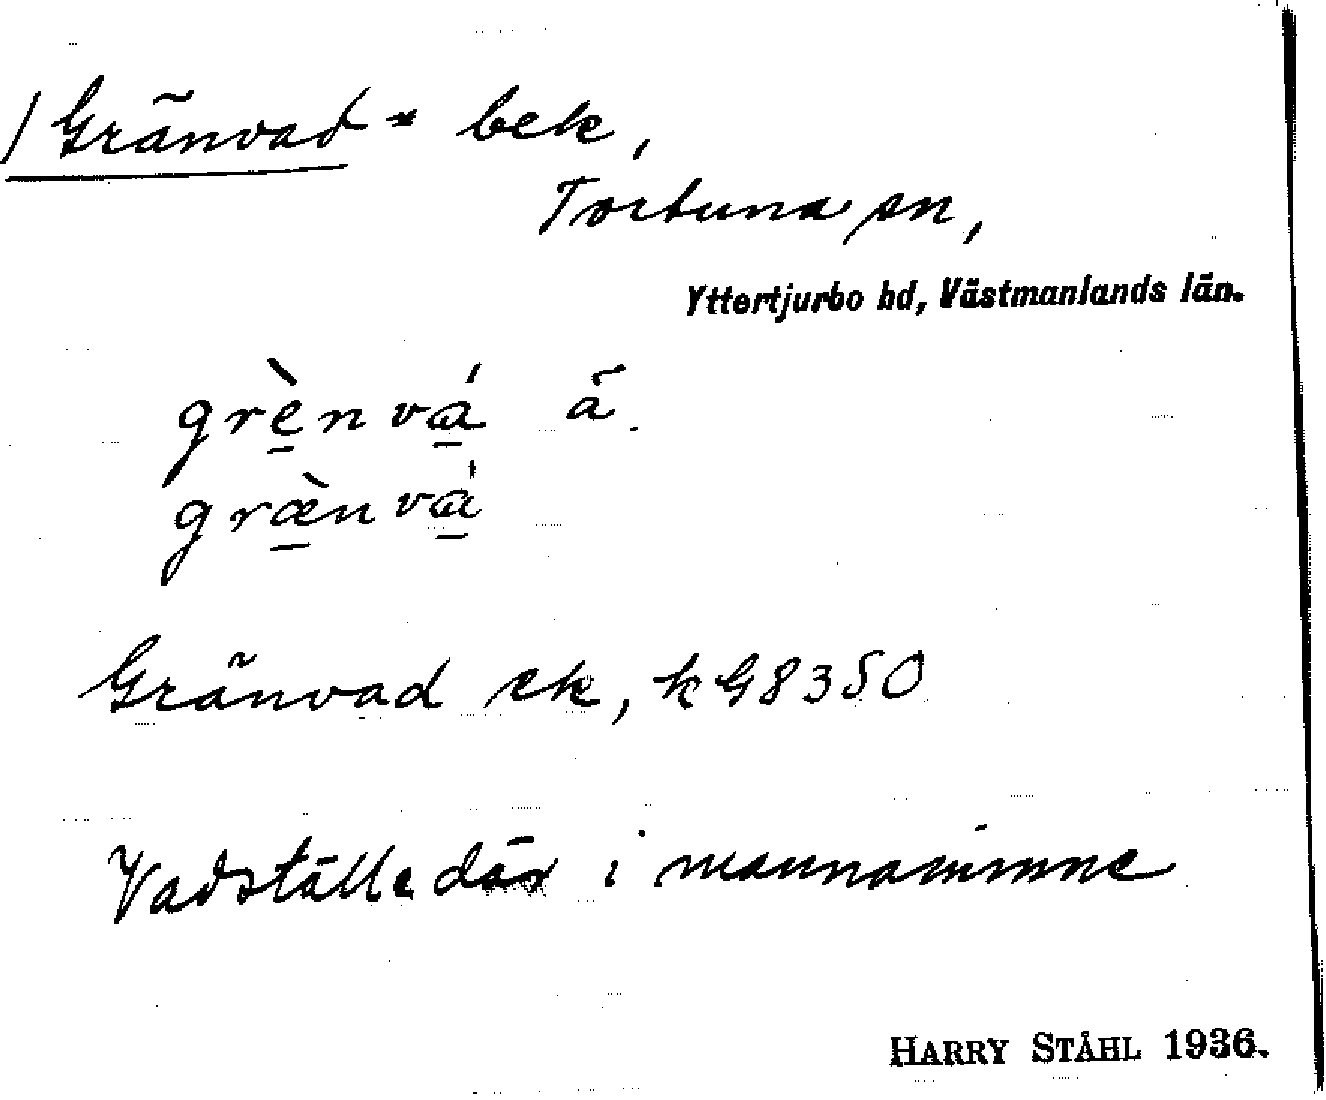 /Gränvad * bek,
Tortuna sn,
Yttertjurbo hd, Västmanlands län.
grènvá ä.
græ̀nvá
Gränvad ek, k G8350
Vadställe där i mannaminne
HARRY STÅHL 1936.